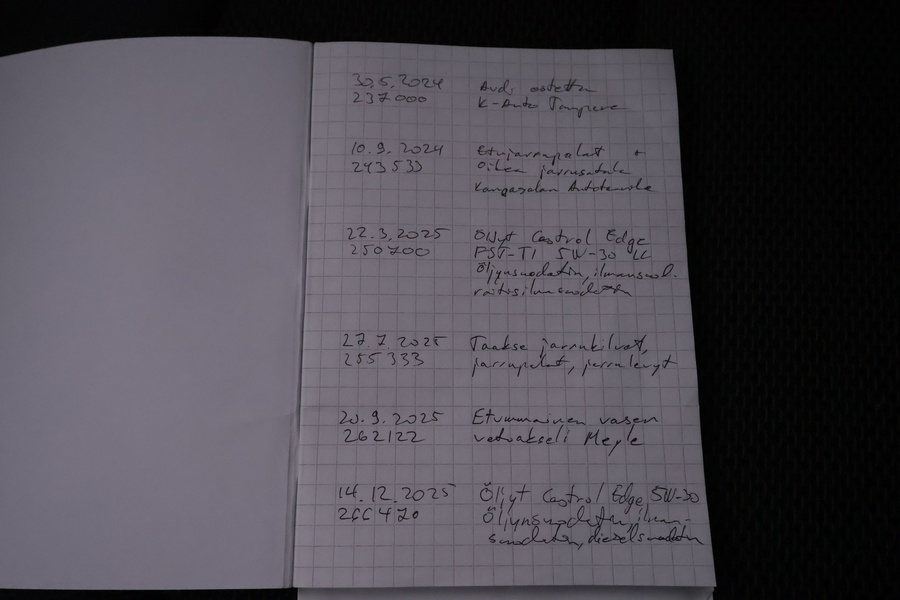 30.5.2024 Audi ostettu
237000 K-Auto Tampere
10.9.2024 Etujarrupalat +
243533 Oikea jarrusatula
Kangasalan Autotarvike
22.3.2025 Öljyt Castrol Edge
250700 FST-TI 5W-30 LL
Öljynsuodatin, ilmansuod.
raitisilmasuodatin
27.7.2025 Taakse jarrukilvet,
255333 jarrupalat, jarrulevyt
20.9.2025 Etummainen vasen
262122 vetoakseli Meyle
14.12.2025 Öljyt Castrol Edge 5W-30
266470 Öljynsuodatin, ilman-
suodatin, dieselsuodatin